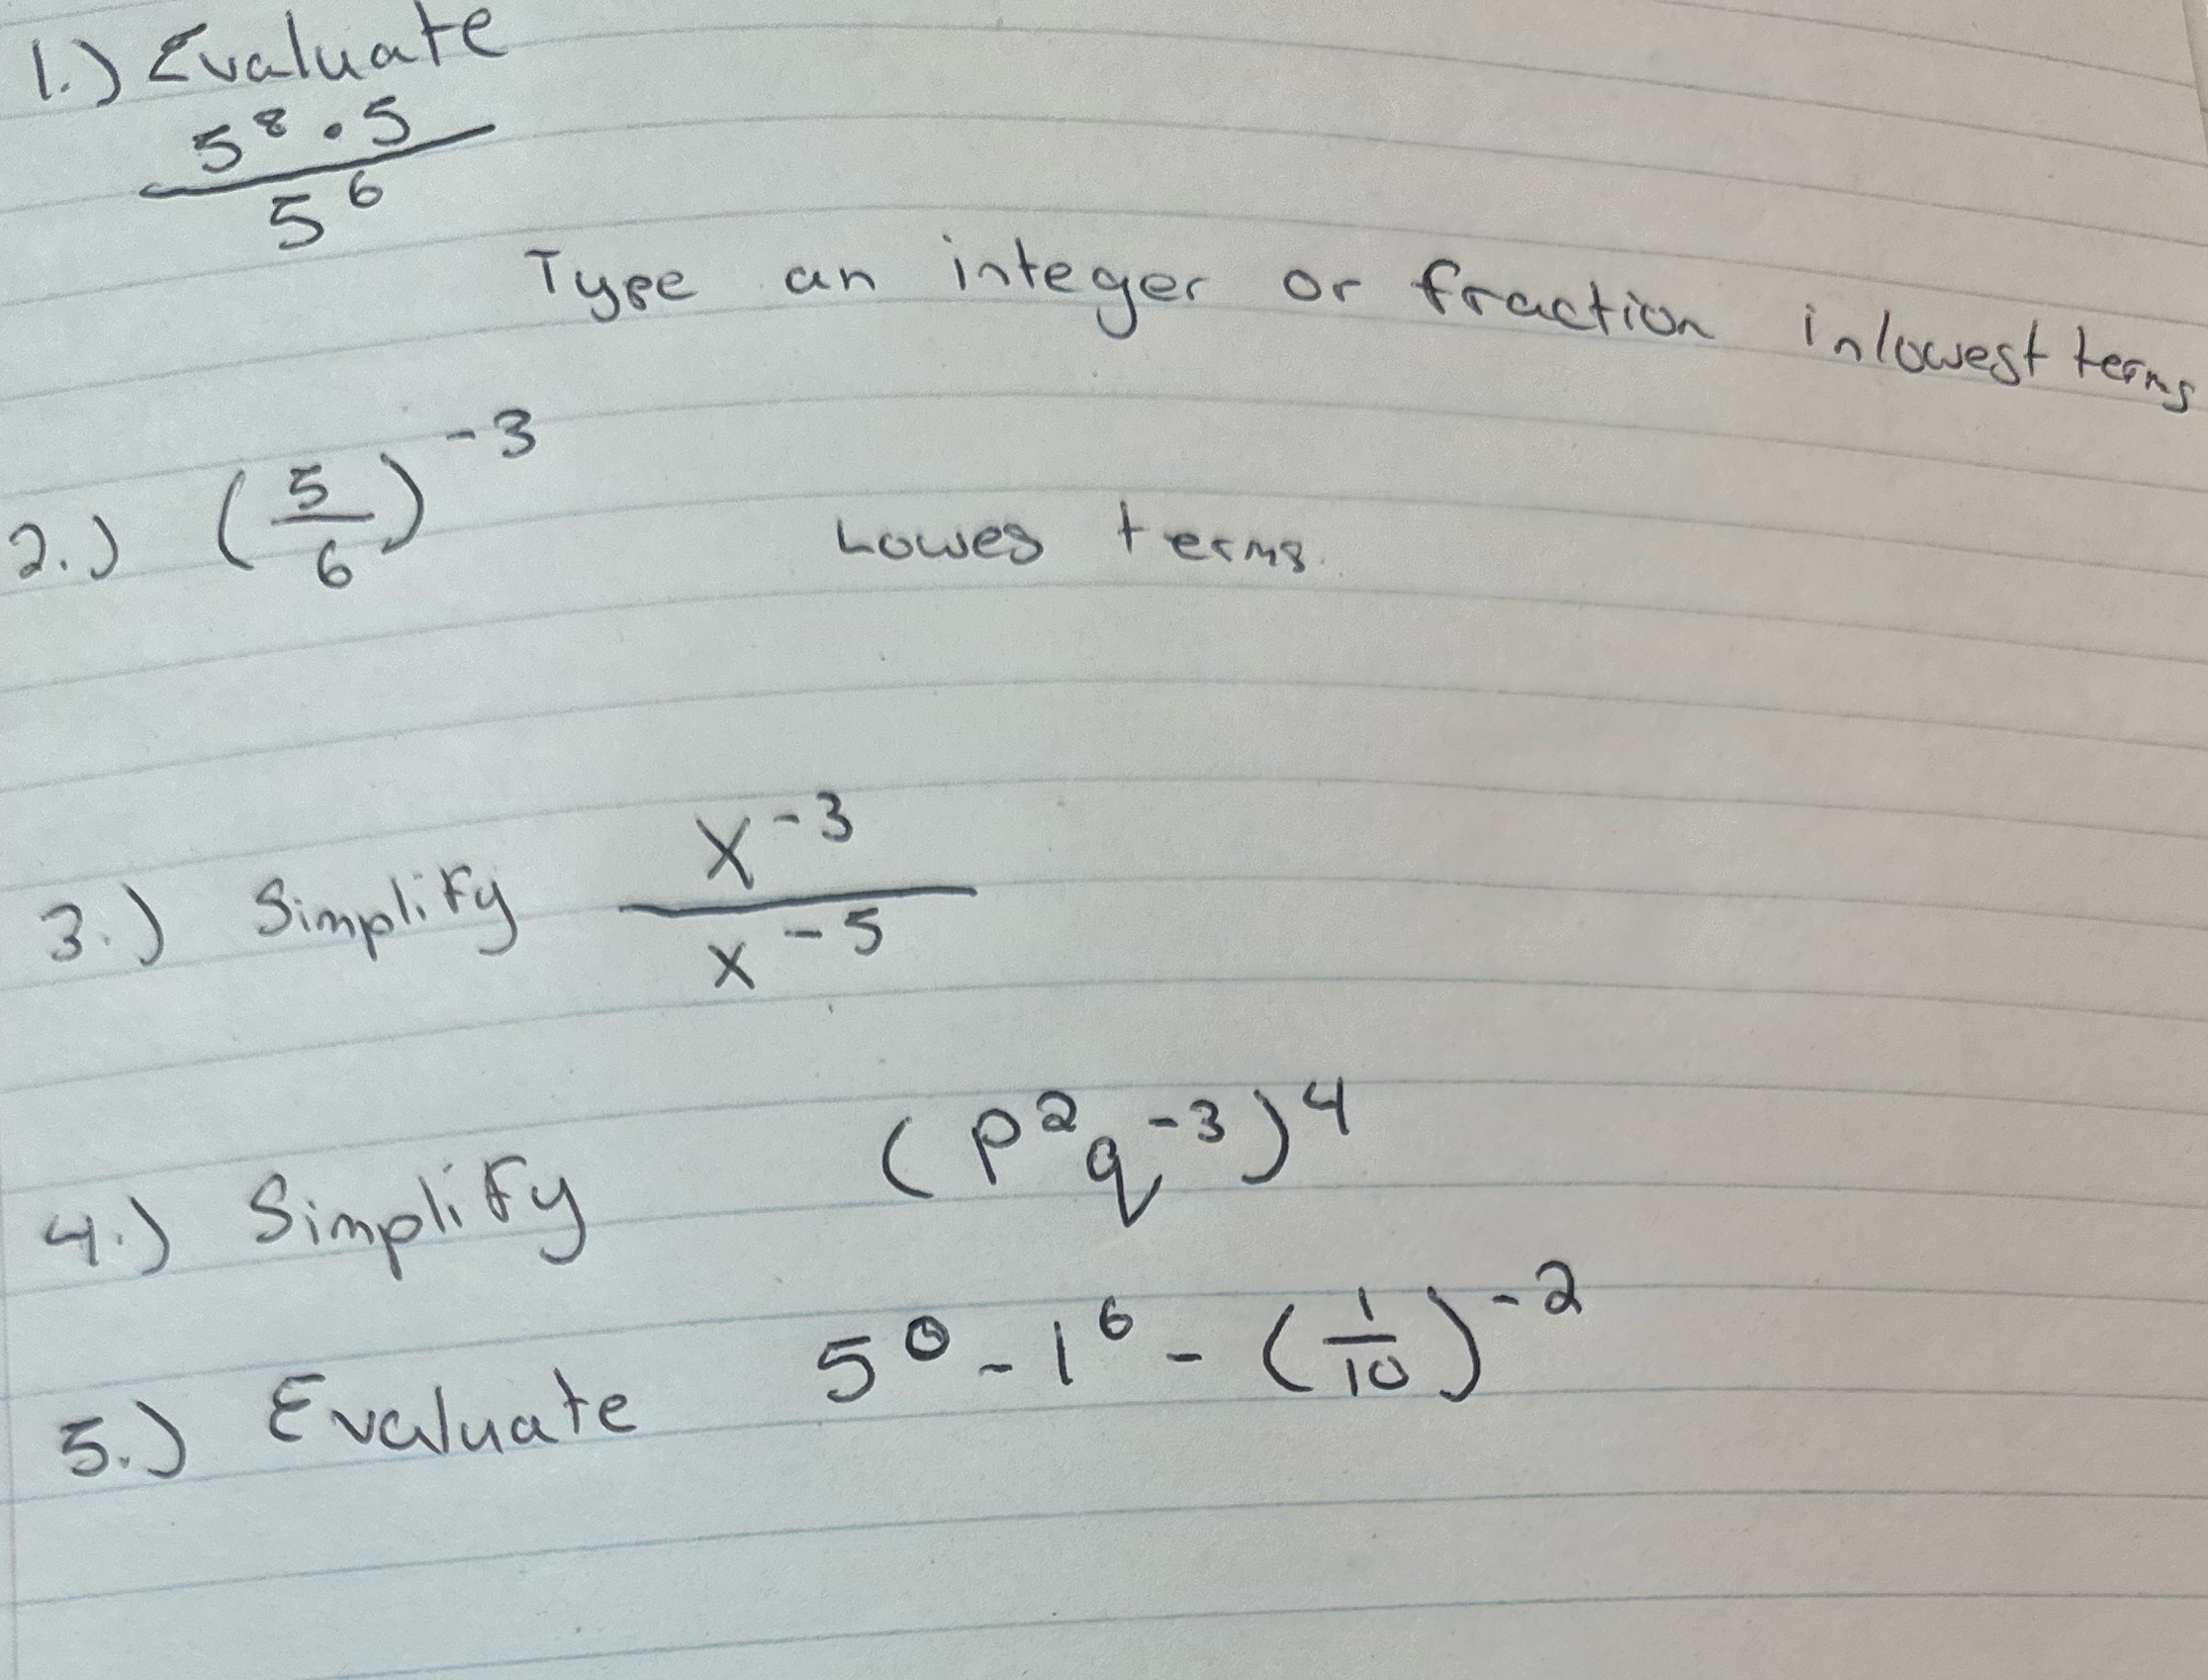 1.) Evaluate
5⁸ · 5
5⁶
Type an integer or fraction in lowest terms
2.) (5/6)⁻³ Lowes terms.
3.) Simplify x⁻³/x⁻⁵
4.) Simplify (p²q⁻³)⁴
5.) Evaluate 5⁰ - 1⁶ - (1/10)⁻²